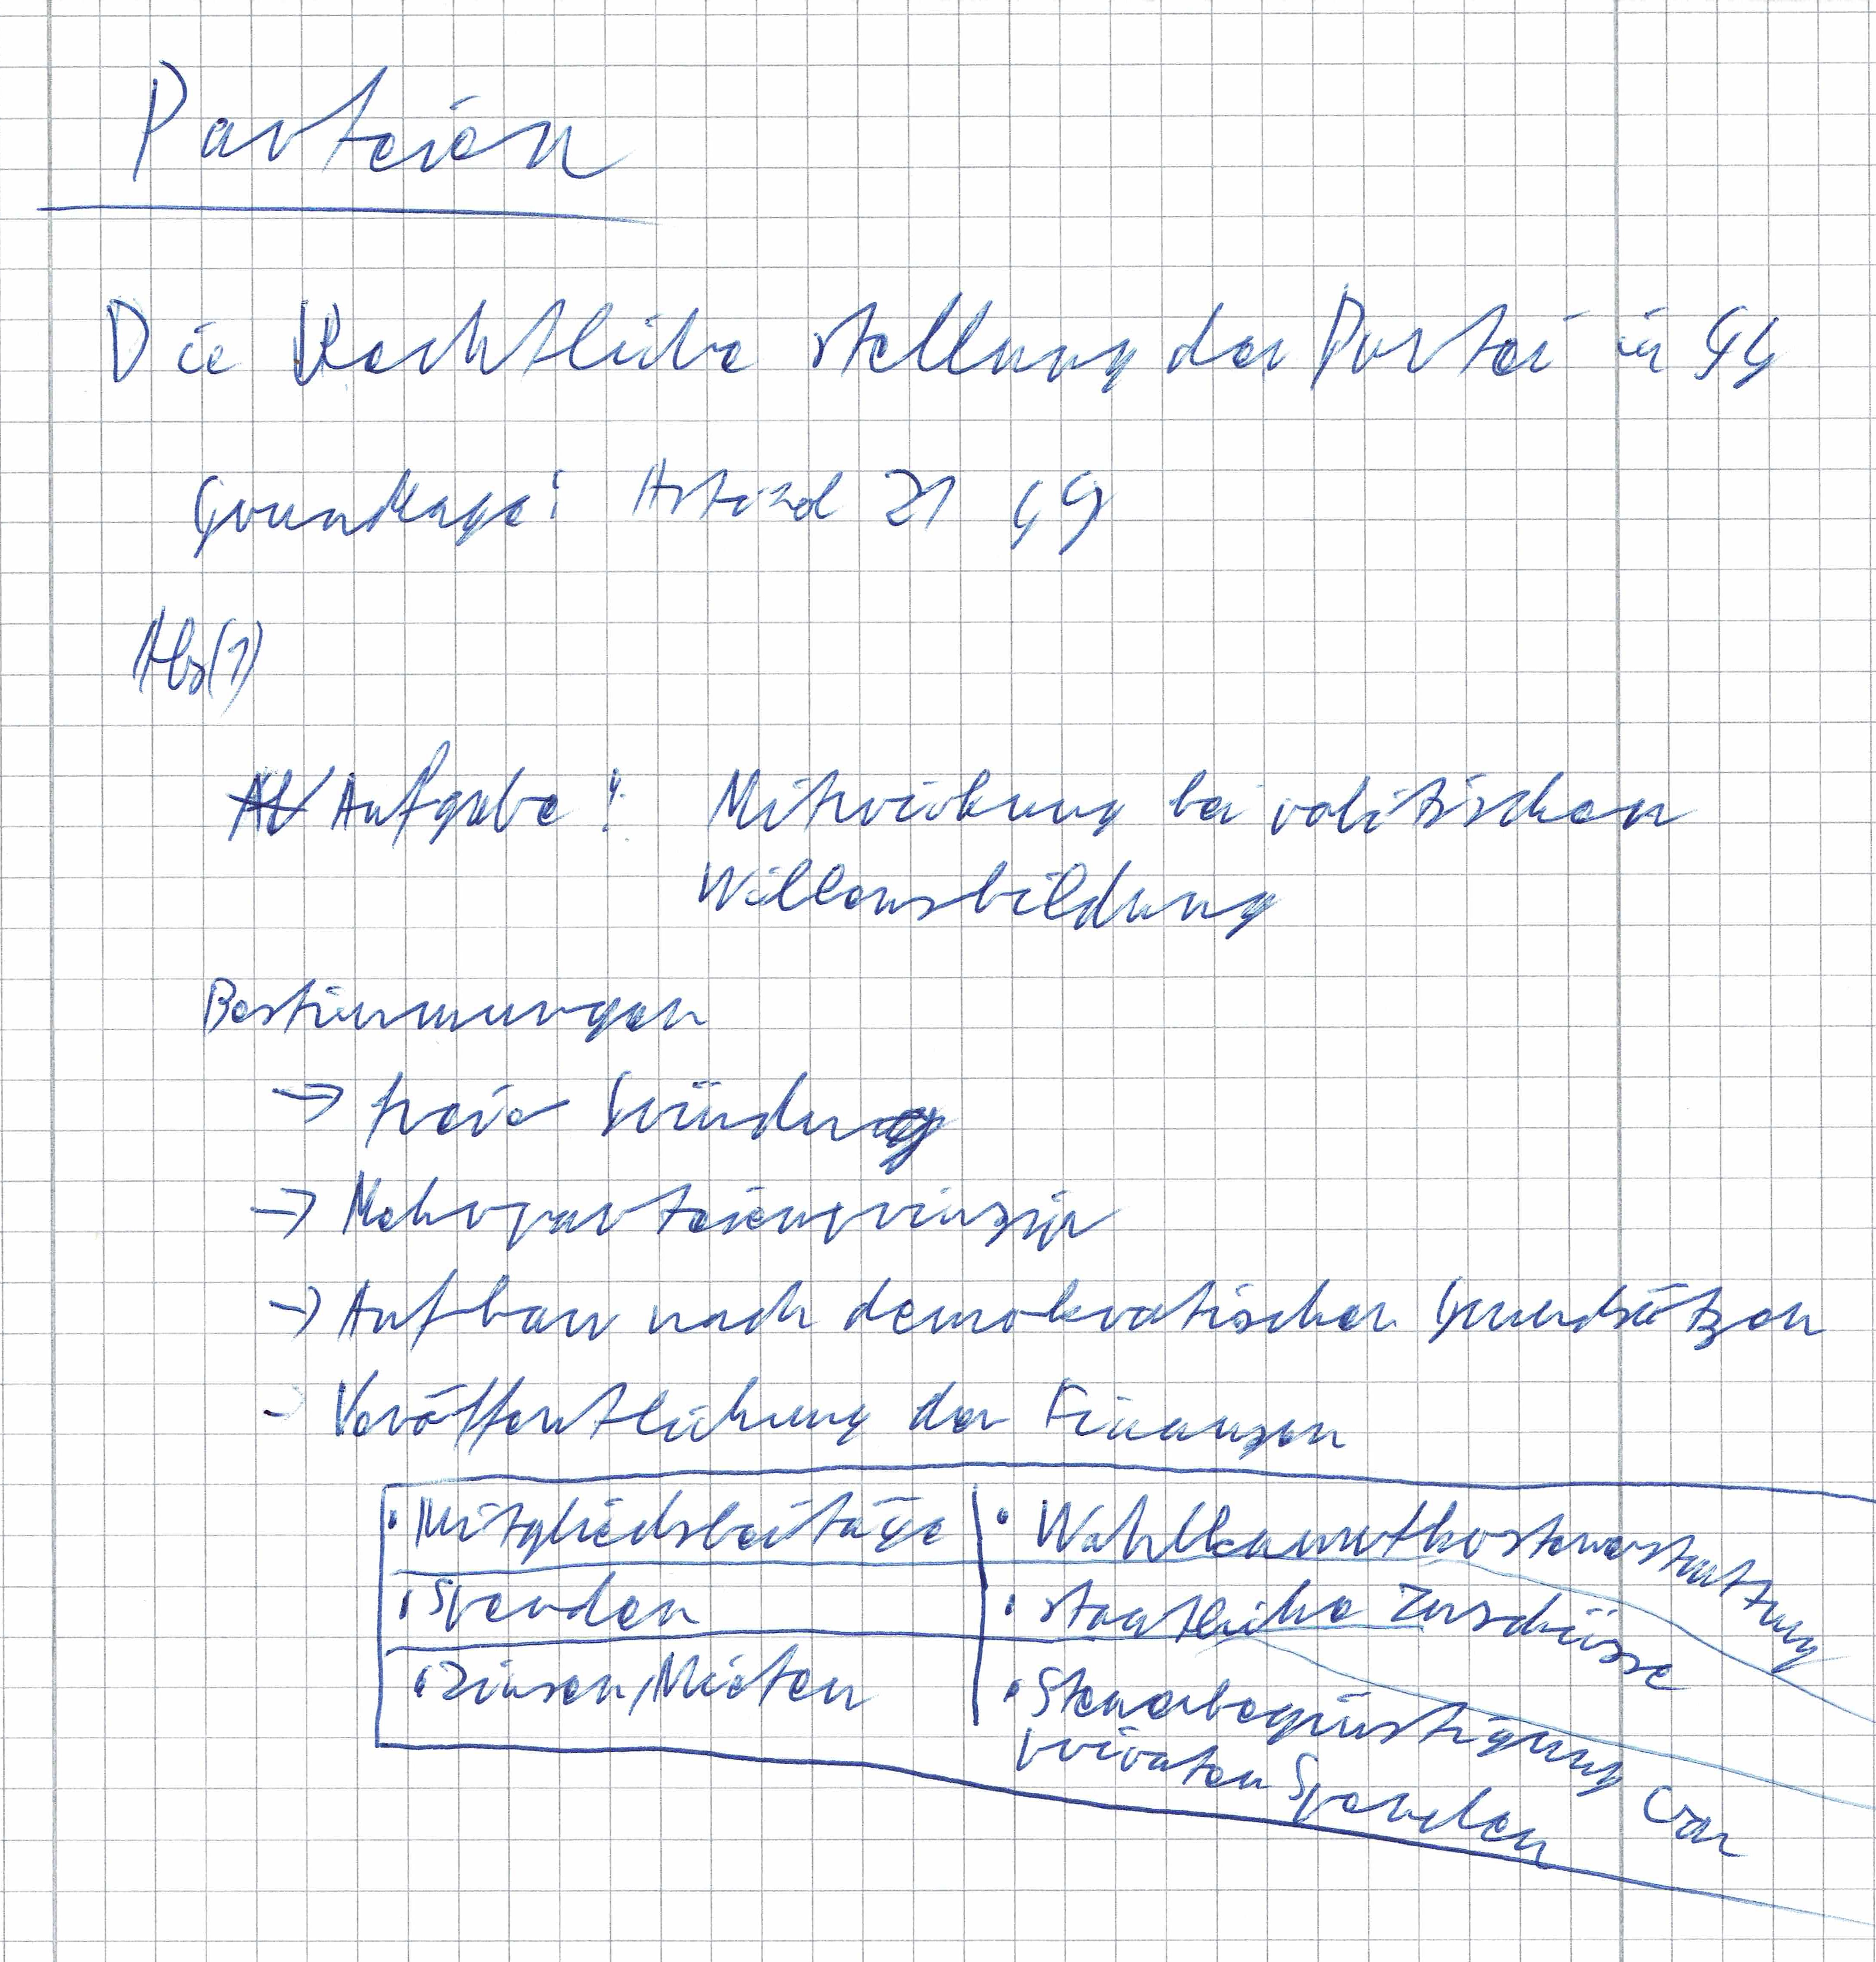 Parteien
Die Rechtliche stellung der Partei in GG
Grundlage: Artikel 21 GG
Abs(1)
Aufgabe: Mitwirkung bei politischen
Willensbildung
Bestimmungen
→ freie Gründung
→ Mehrparteienprinzip
→ Aufbau nach demokratischen Grundsätzen
→ Veröffentlichung der Finanzen
• Mitgliedsbeiträge • Wahlkampfkostenerstattung
• Spenden • staatliche Zuschüsse
• Zinsen, Mieten • Steuerbegünstigung von
privaten Spenden